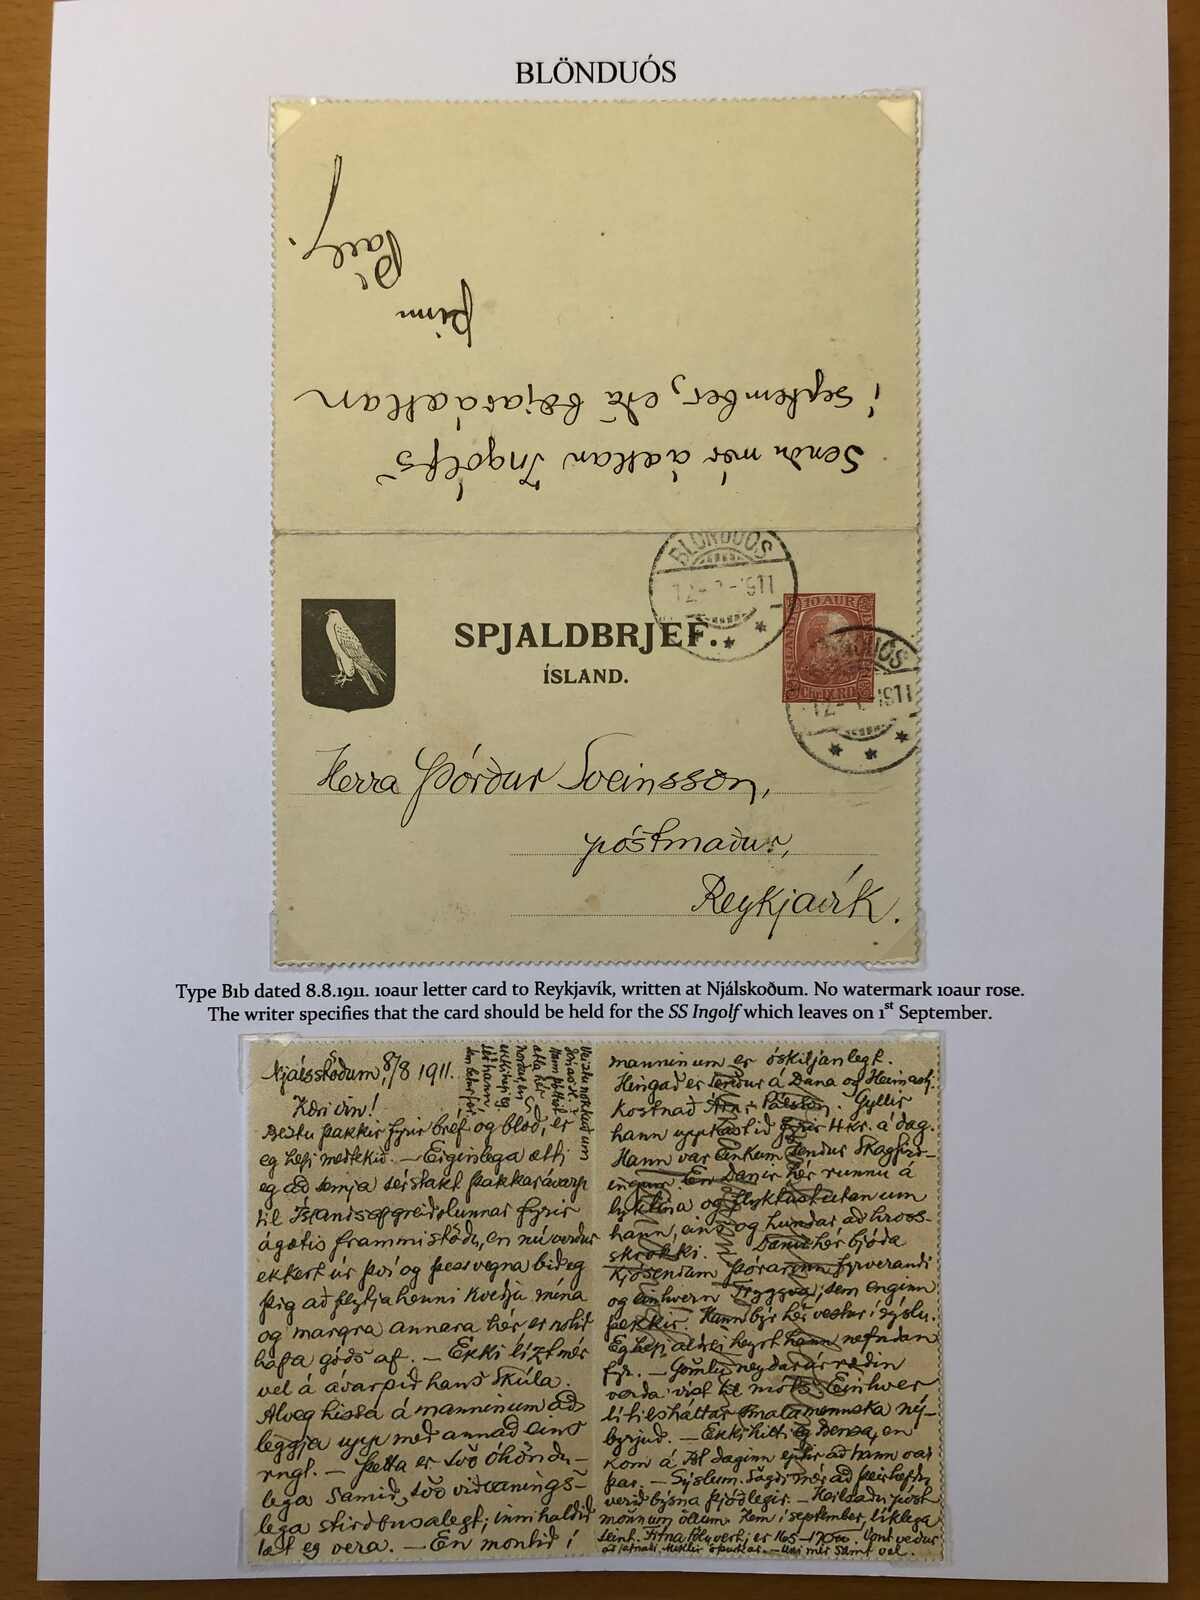 BLÖNDUÓS
Sendu mér áætlan Ingólfs
í september, eða bæjaráætlan
þinn
BLÖNDUÓS
12- -1911
10 AUR
ÍSLAND
Chr. IX. RD.
SPJALDBRJEF.
ÍSLAND.
12- -1911
Herra Þórður Sveinsson,
póstmaður,
Reykjavík.
Type B1b dated 8.8.1911. 10aur letter card to Reykjavík, written at Njálskoðum. No watermark 10aur rose.
The writer specifies that the card should be held for the SS Ingolf which leaves on 1st September.
Njálsstöðum, 8/8 1911.
Kæri vin!
Beztu þakkir fyrir bréf og bloð, er
eg hefi meðtekið. — Eiginlega ætti
eg að semja sérstakt þakkarávarp
til Íslandsafgreiðslunnar fyrir
ágætis frammistöðu, en nú verður
ekkert úr því og þess vegna bið eg
þig að flytja henni kveðju mína
og margra annara hér er notið
hafa góðs af. — Ekki lízt mér
vel á ávarpið hans Skúla.
Alveg hissa á manninum að
leggja upp með annað eins
rugl. — Þetta er svo óhöndu-
lega samið, svo viðvanings-
lega stirðbusalegt; innihaldið
læt eg vera. — En montið í
manninum er óskiljanlegt.
Hingað er sendur á Dana og Heimastj.
kostnað Árni Pálsson. Gyllir
hann uppkastið fyrir 4 kr. á dag.
Hann var einkum sendur Skagfirð-
ingum. En Danir hér runnu á
lyktina og flyktust utan um
hann, eins og hundar að hross-
skrokki. Danir hér bjóða
kjósendum Þórarinn fyrverandi
og einhvern Tryggva, sem enginn
þekkir. Hann býr hér vestur í sýslu.
Eg hefi aldrei heyrt hann nefndan
fyr. — Gömlu neydarúrræðin
verða víst á móti. Einhver
lítilsháttar smalamennska ný-
byrjuð. — Ekki hitti eg Benso, en
kom á Bl daginn eptir að hann var
þar. — Sýslum. sagði mér að þeir hefðu
verið býsna þjóðlegir. — Heilsaðu póst-
mönnum öllum. Kem í september, líklega
seint. Vont veður
— samt vel.